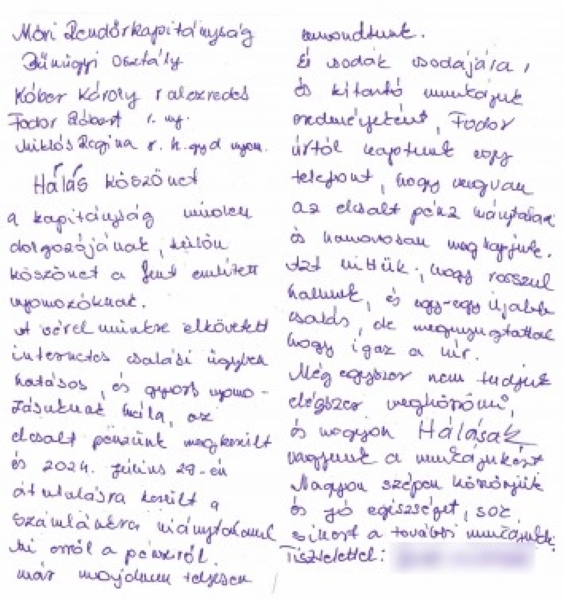 Móri Rendőrkapitányság
Bűnügyi osztály
Kóber Károly r alezredes
Fodor Róbert r. ny.
Miklós Regina r. h. gyd nyom.
Hálás köszönet
a kapitányság minden
dolgozójának, külön
köszönet a fent említett
nyomozóknak.
A vérel minkre elkövetett
internetes csalási ügyben
hatásos, és gyors nyomo-
zásuknak hála, az
elcsalt pénzünk megkerült
és 2024. július 29-én
átutalásra került a
számlánkra hiánytalanul
Mi erről a pénzről.
már majdnem teljesen
lemondtunk.
És csodák csodájára,
és kitartó munkájuk
eredményeként, Fodor
úrtól kaptunk egy
telefont, hogy megvan
az elcsalt pénz hiánytalan
és hamarosan megkapjuk.
Azt hittük, hogy rosszul
hallunk, és egy-egy újabb
csalás, de megnyugtattak
hogy igaz a hír.
Még egyszer nem tudjuk
elégszer megköszönni,
és nagyon Hálásak
vagyunk a munkájukért
Nagyon szépen köszönjük
és jó egészséget, sok
sikert a további munkájukhoz.
Tisztelettel: